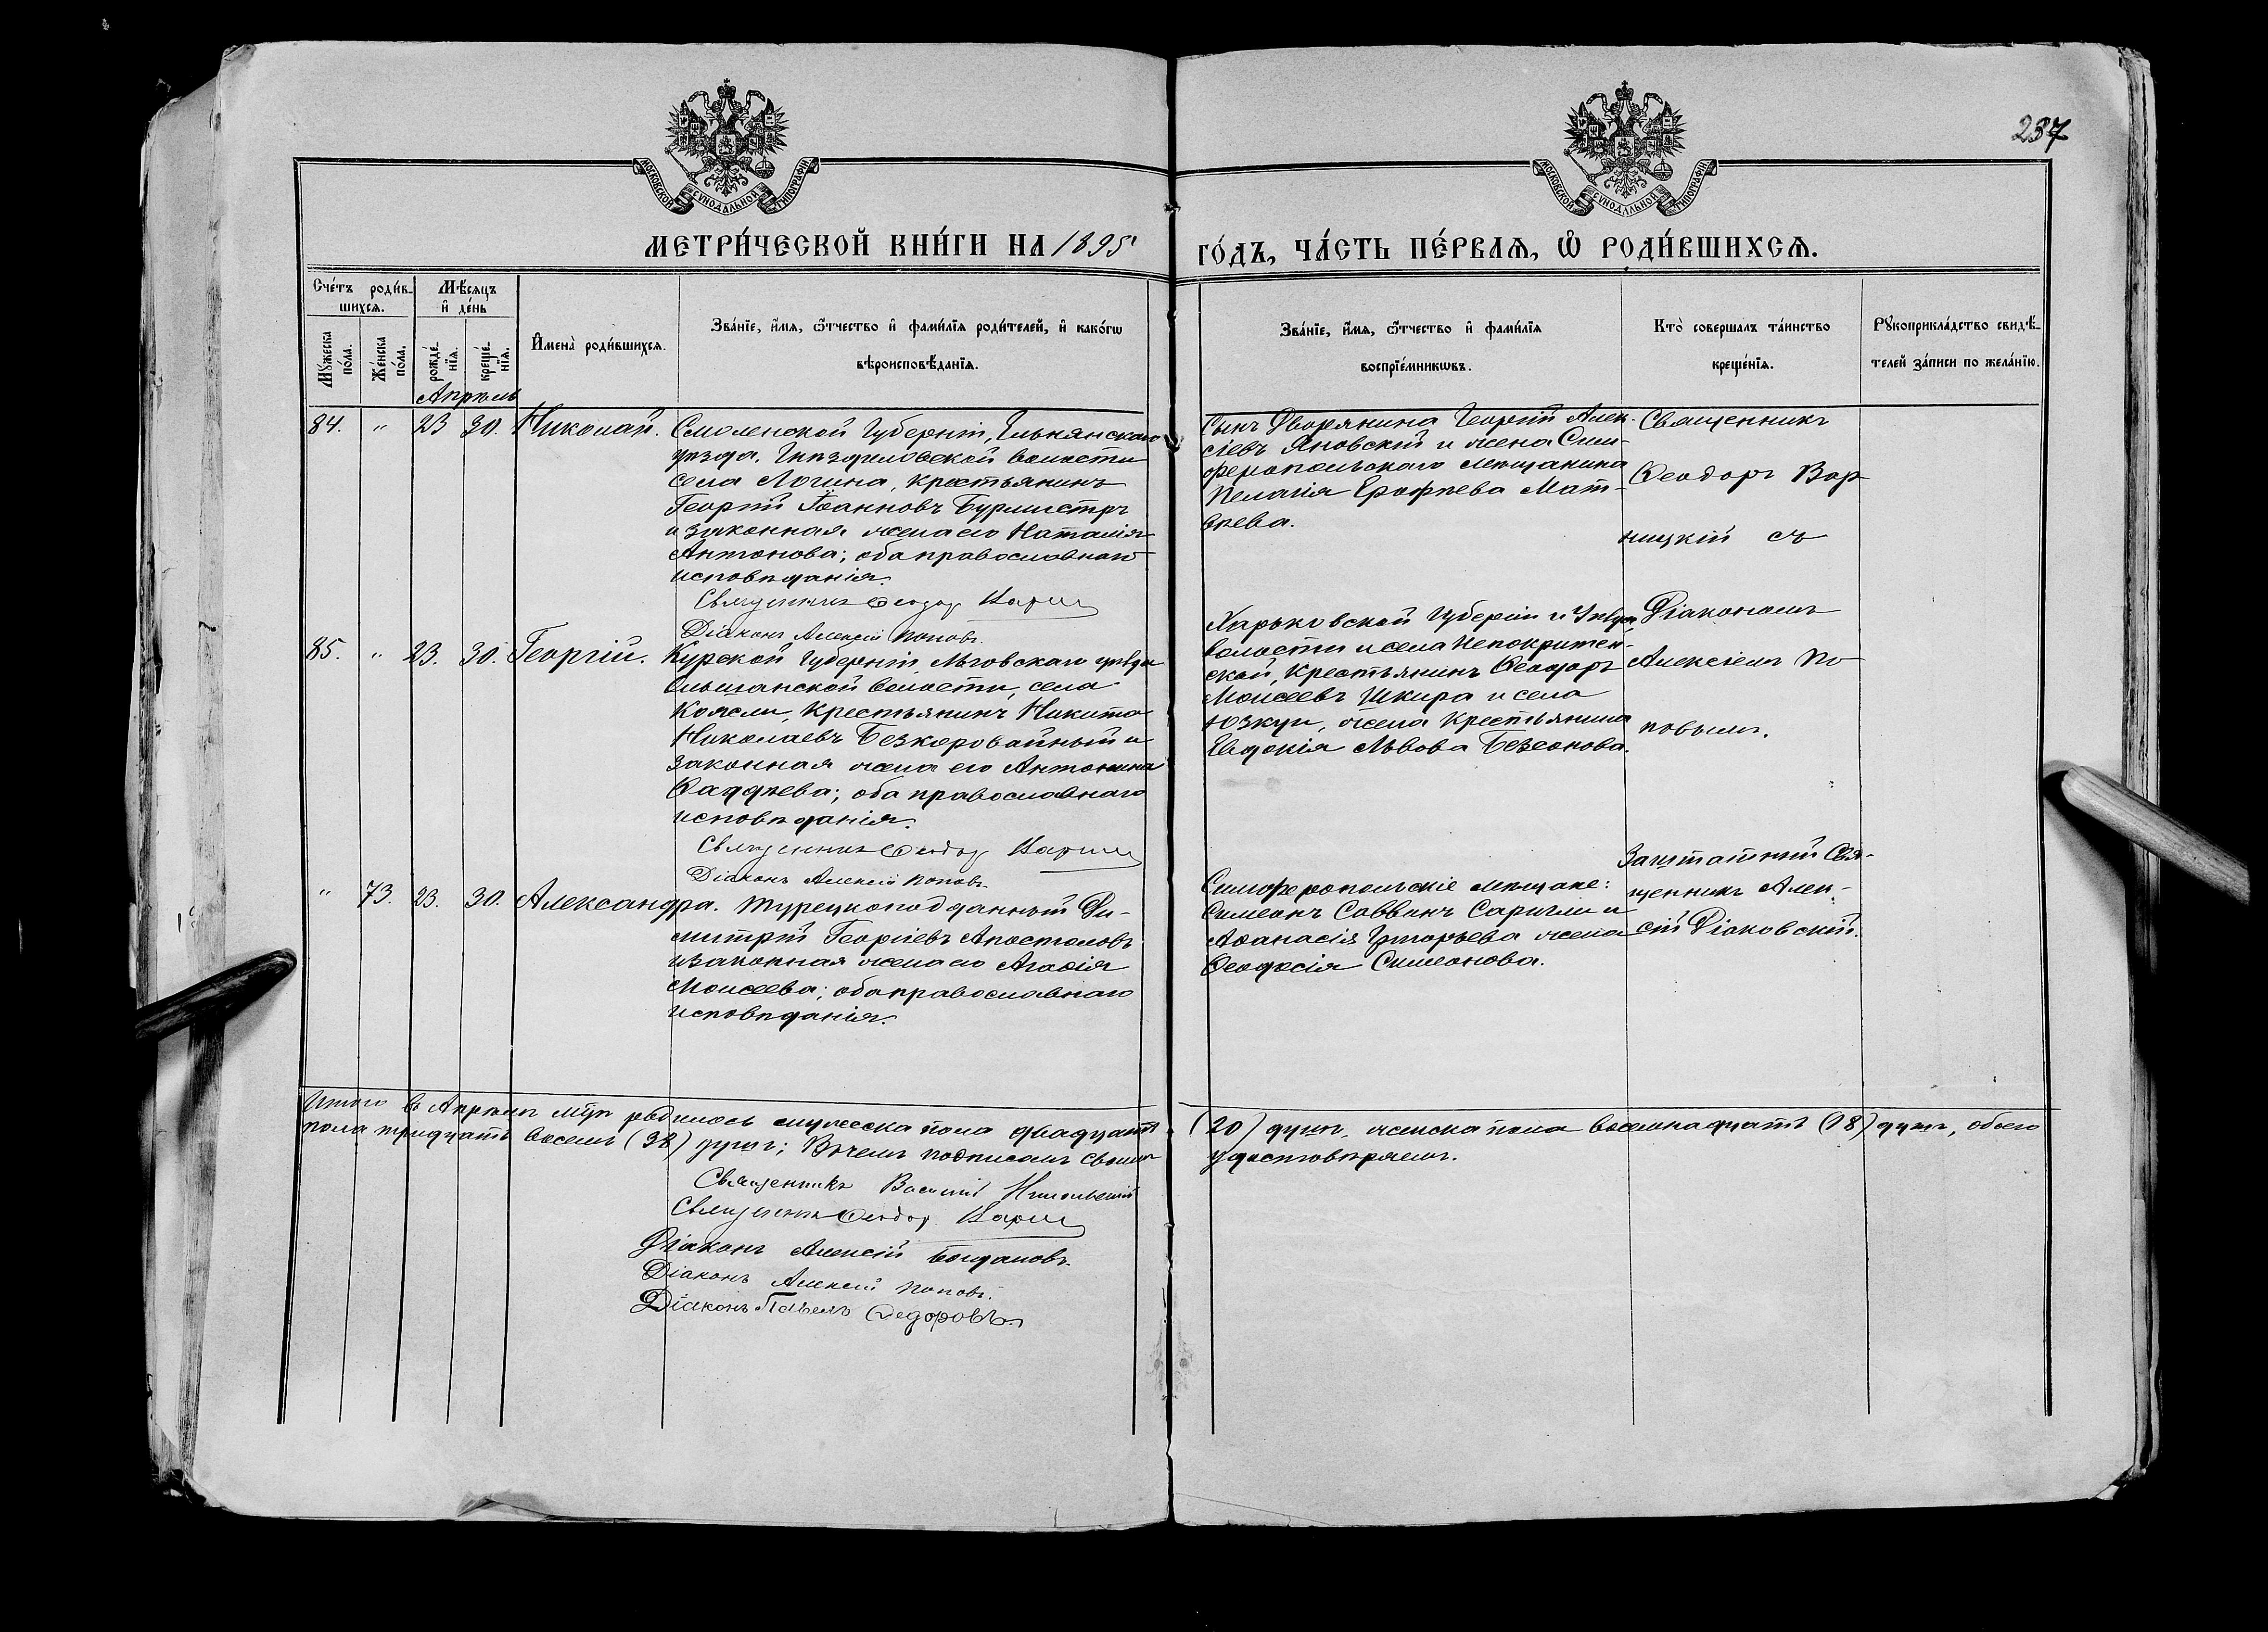 237
МОСКОВСКОЙ СѴНОДАЛЬНОЙ ТИПОГРАФІИ
МОСКОВСКОЙ СѴНОДАЛЬНОЙ ТИПОГРАФІИ
МЕТРИ́ЧЕСКОЙ КНИ́ГИ НА 1895 ГО́ДЪ, ЧА́СТЬ ПЕ́РВАѦ, Ѽ РОДИ́ВШИХСѦ.
Сче́тъ роди́в-
шихсѧ.
Мѣ́сѧцъ
и҆ де́нь
Мꙋ́жеска
по́ла.
Же́нска
по́ла.
рожде́-
нїѧ.
креще́-
нїѧ.
И҆мена̀ роди́вшихсѧ.
Зва́нїе, и҆́мѧ, ѻ҆́тчество и҆ фами́лїѧ роди́телей, и҆ како́гѡ
вѣроисповѣ́данїѧ.
Зва́нїе, и҆́мѧ, ѻ҆́тчество и҆ фами́лїѧ
воспрїе́мникѡвъ.
Кто̀ соверша́лъ та́инство
креще́нїѧ.
Рꙋкоприкла́дство свидѣ́-
телей за́писи по жела́нїю.
Апрѣль
84. „ 23 30. Николай.
Смоленской Губерніи, Ельнянскаго
уѣзда, Гнѣздиловской волости
села Логина, крестьянинъ
Георгій Іоанновъ Бурмистръ
и законная жена его Наталія
Антонова; оба православнаго
исповѣданія.
Священникъ Ѳеодоръ
Діаконъ Алексій Поповъ.
Сынъ Дворянина Георгій Алек-
сіевъ Яновскій и жена Сим-
феропольскаго мѣщанина
Пелагія Ерофѣева Мат-
вѣева.
Священникъ
Ѳеодоръ Вар
ницкій съ
Діакономъ
Алексіемъ По
повымъ.
85. „ 23. 30. Георгій.
Курской Губерніи Льговскаго уѣзда
Ольшанской волости, села
Кожли, крестьянинъ Никита
Николаевъ Безкоровайный и
законная жена его Антонина
Фаддѣева; оба православнаго
исповѣданія.
Священникъ Ѳеодоръ
Діаконъ Алексій Поповъ.
Харьковской Губерніи и Уѣзда,
волости и села Непокритен-
ской, крестьянинъ Ѳеодоръ
Моисеевъ Шкира и села
Юзкуи, жена крестьянина
Евдокія Львова Безсонова.
„ 73. 23. 30. Александра.
Турецкоподданный Ди-
митрій Георгіевъ Апостоловъ
и законная жена его Агафія
Моисеева; оба православнаго
исповѣданія.
Симферопольскіе мѣщане:
Симеонъ Саввинъ Саригли и
Аѳанасія Григорьева жена
Ѳеодосія Симеонова.
Заштатный Свя-
щенникъ Алек-
сій Діаковскій.
Итого въ Апрѣлѣ мцѣ родилось мужеска пола двадцать (20) душъ, женска пола восемнадцать (18) душъ, обоего
пола тридцать восемь (38) душъ; В чемъ подписомъ своимъ удостовѣряемъ.
Священникъ Василій Никольскій
Священникъ Ѳеодоръ
Діаконъ Алексій Богдановъ.
Діаконъ Алексій Поповъ.
Діаконъ Павелъ Ѳедоровъ.